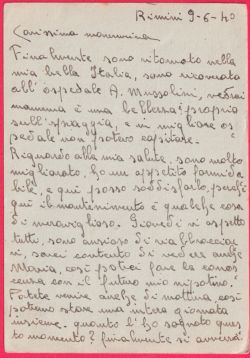 Rimini 9-6-40
Carissima mammina
Finalmente sono ritornato nella
mia bella Italia, sono ricoverato
all'ospedale A. Mussolini, vedrai
mamma è una bellezza proprio
sull'spiaggia, e in migliore os
pedale non potevo capitare.
Riguardo alla mia salute, sono molto
migliorato, ho un appetito formida
bile, e qui posso soddisfarlo, perchè
qui il mantenimento è qualche cosa
di meraviglioso. Giovedì vi aspetto
tutti, sono ansioso di riabbracciar
vi, sarei contento di vedere anche
Maria, così potrei fare la conos
cenza con il futuro mio nipotino.
Potete venire anche di mattina, così
potremo stare una intera giornata
insieme. quanto l'ho sognato ques
to momento? finalmente si avvererà